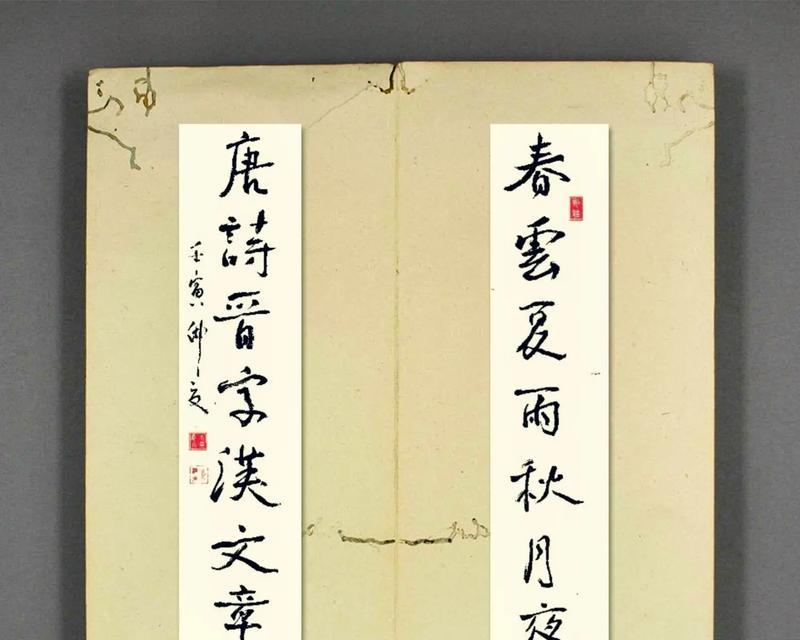 春雲夏雨秋月夜
唐詩晉字漢文章
壬寅